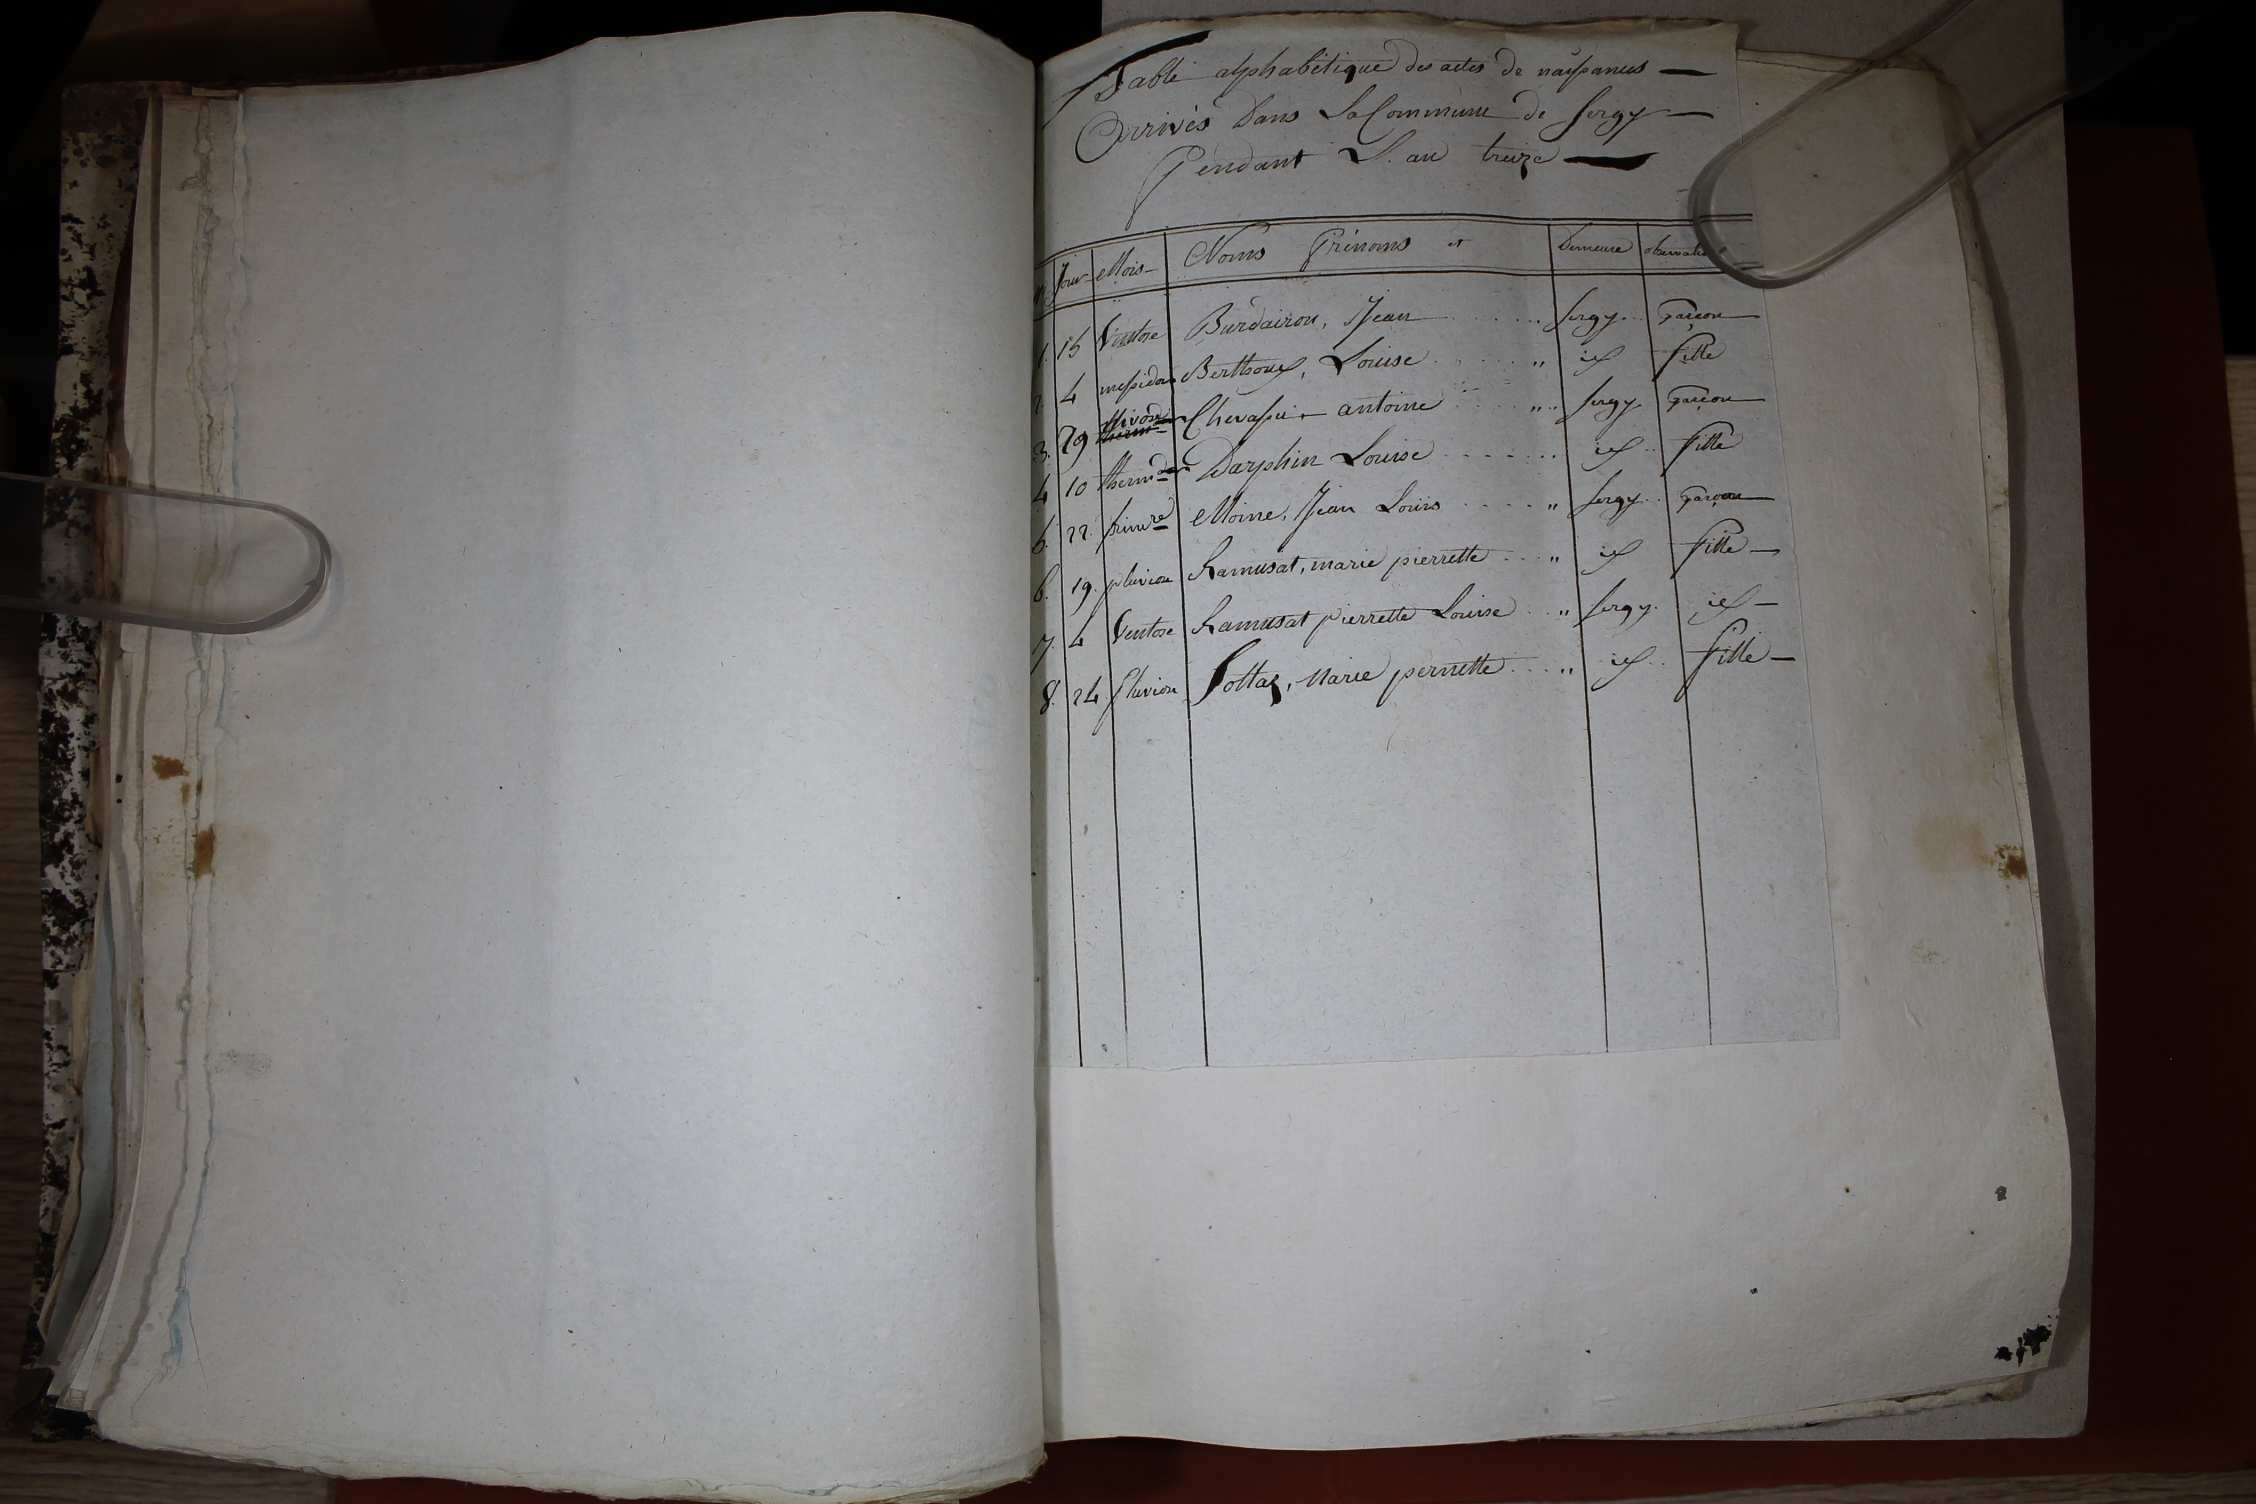 Table alphabétique des actes de naissances
Arrivés dans La Commune de Sergy
Pendant L'an treize
Nº Jour Mois Noms Prénoms et Demeure observations
1. 15 Ventose Burdairon, Jean Sergy Garcon
2. 4 messidor Berthoux, Louise id fille
3. 29 nivose Chevassu antoine Sergy Garçon
4. 10 therm.d Darphin Louise id fille
5. 22 frimre Moine, Jean Louis Sergy Garçon
6. 19. pluviose Ramusat, marie pierrette id fille
7. 4 Ventose Ramusat pierrette Louise Sergy. id
8. 24 Pluviose Sottaz, Marie pernette id fille